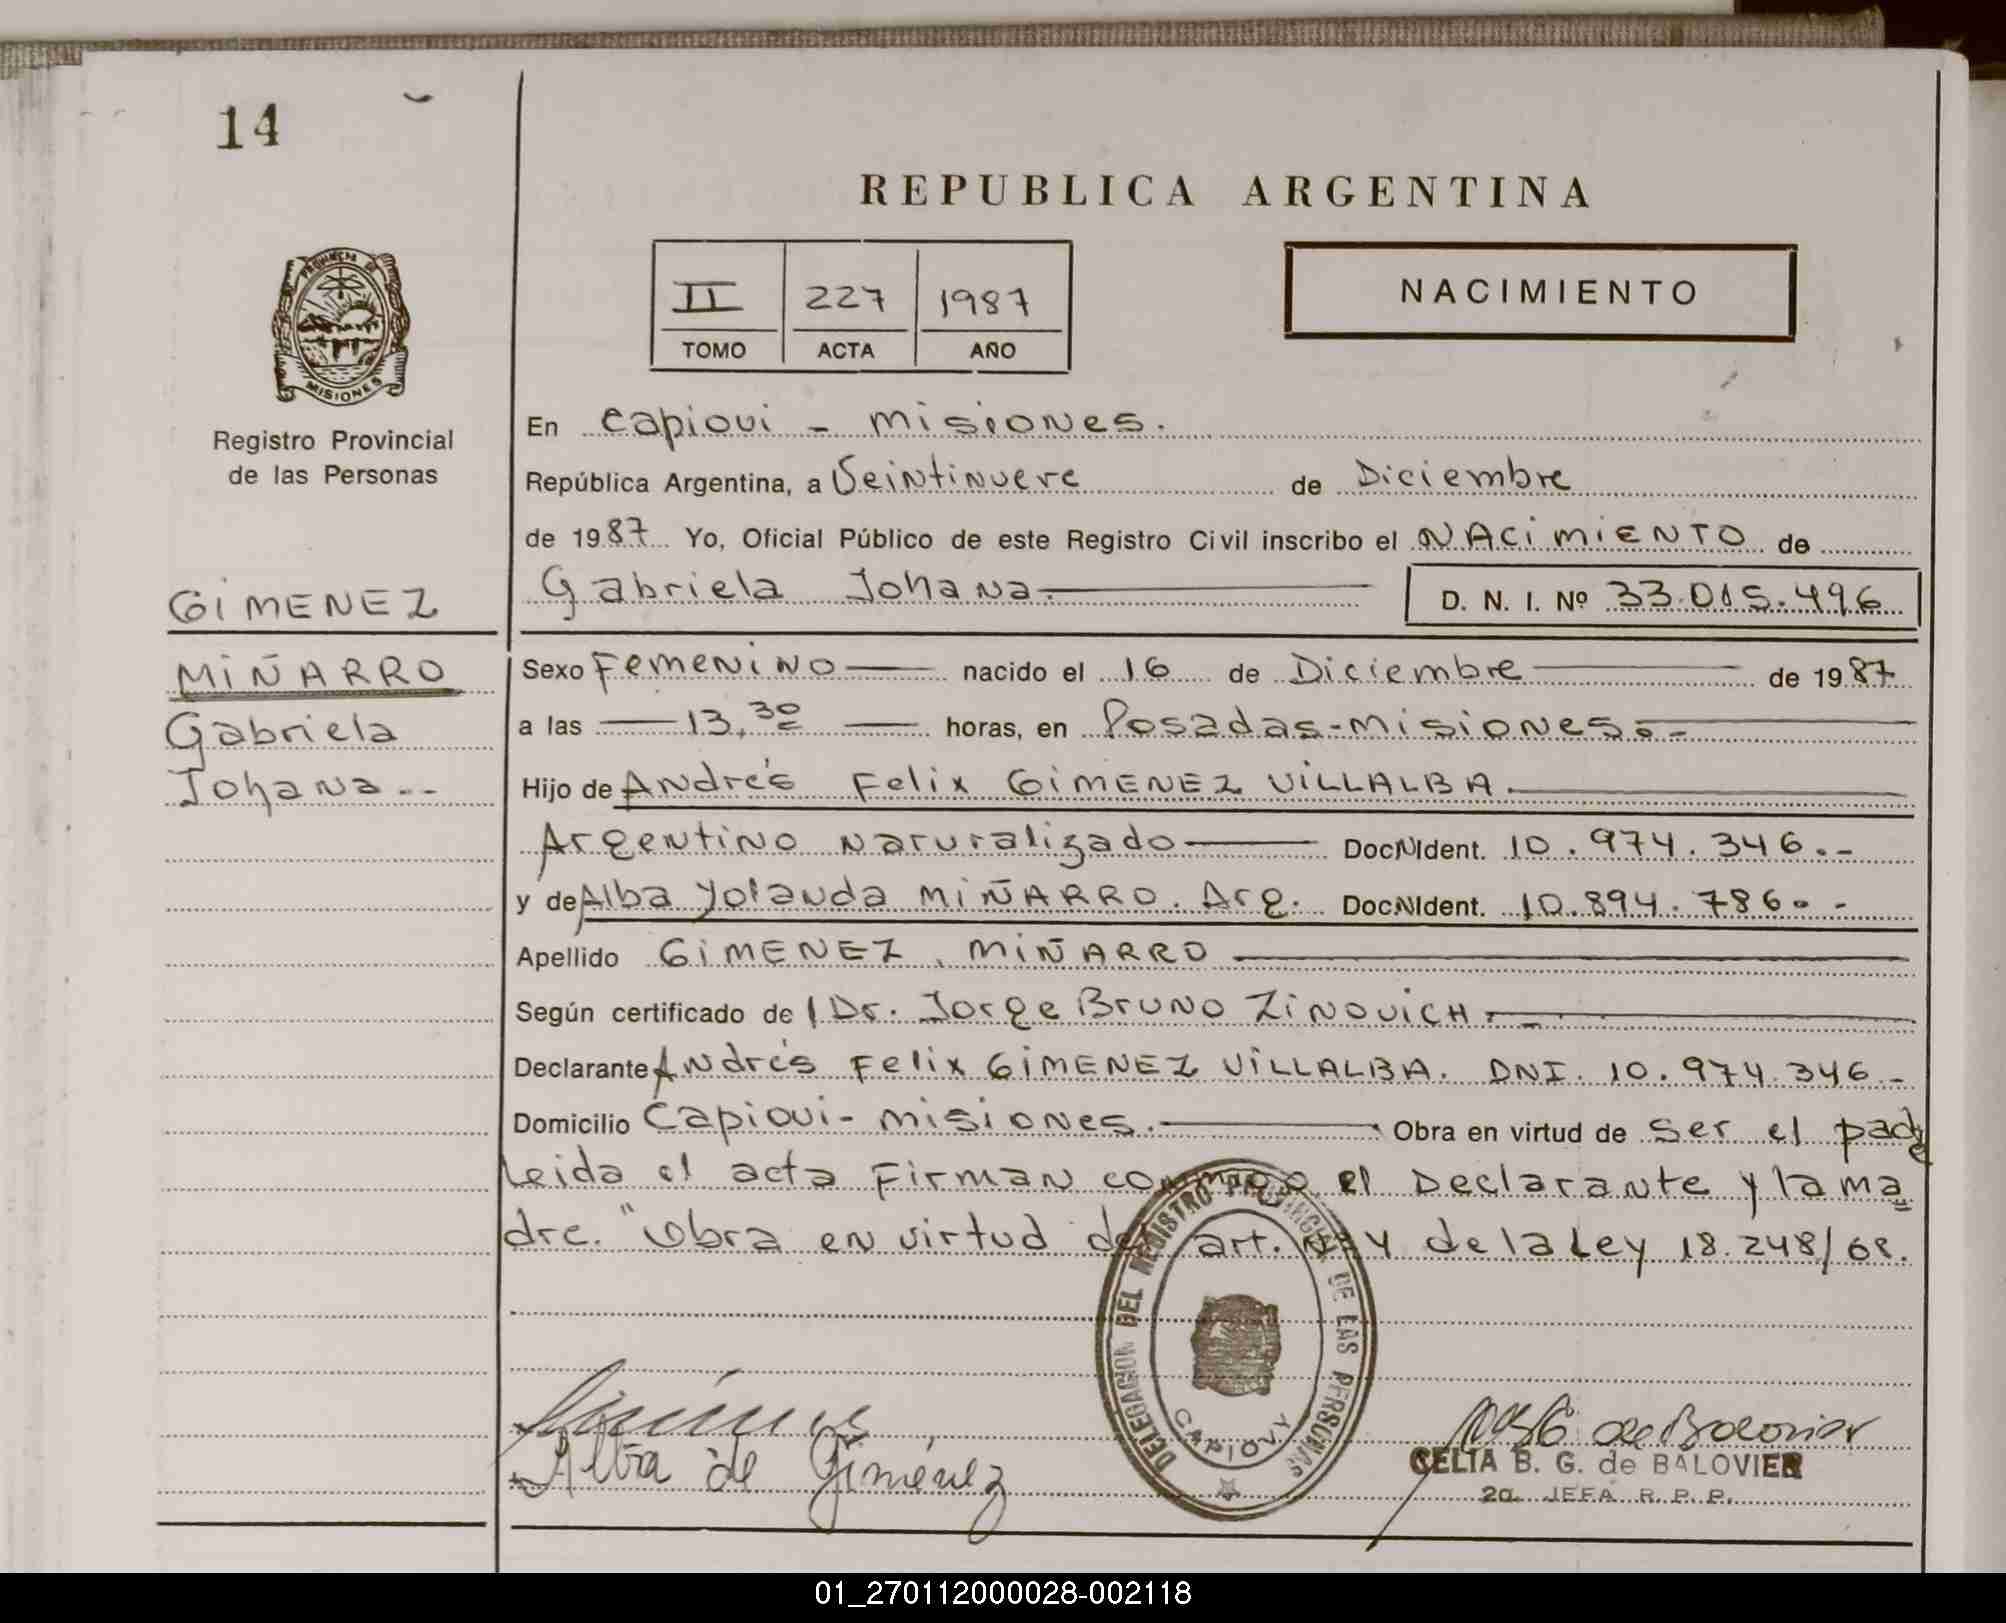 14
REPUBLICA ARGENTINA
II 227 1987
TOMO ACTA AÑO
NACIMIENTO
PROVINCIA DE
MISIONES
Registro Provincial
de las Personas
GIMENEZ
MIÑARRO
Gabriela
Johana--
En Capiovi - Misiones.
República Argentina, a Veintinueve de Diciembre
de 1987 Yo, Oficial Público de este Registro Civil inscribo el NACIMIENTO de
Gabriela Johana.
D. N. I. Nº 33.015.496
Sexo Femenino nacido el 16 de Diciembre de 1987
a las 13,30 horas, en Posadas-Misiones.-
Hijo de Andrés Felix GIMENEZ VILLALBA
Argentino naturalizado Doc N Ident. 10.974.346.-
y de Alba Yolanda MIÑARRO. Arg. Doc N Ident. 10.894.786.-
Apellido GIMENEZ, MIÑARRO
Según certificado de l Dr. Jorge Bruno ZINOVICH.-
Declarante Andrés Felix GIMENEZ VILLALBA. DNI. 10.974.346-
Domicilio Capiovi- Misiones. Obra en virtud de ser el padre
Leida el acta Firman conmigo el Declarante y la ma
dre. "Obra en virtud del art. y de la Ley 18.248/68.
DELEGACION DEL REGISTRO PROVINCIAL DE LAS PERSONAS
CAPIOVY
Alba de Giménez
de Balovier
CELIA B. G. de BALOVIER
2a. JEFA R. P. P.
01_270112000028-002118